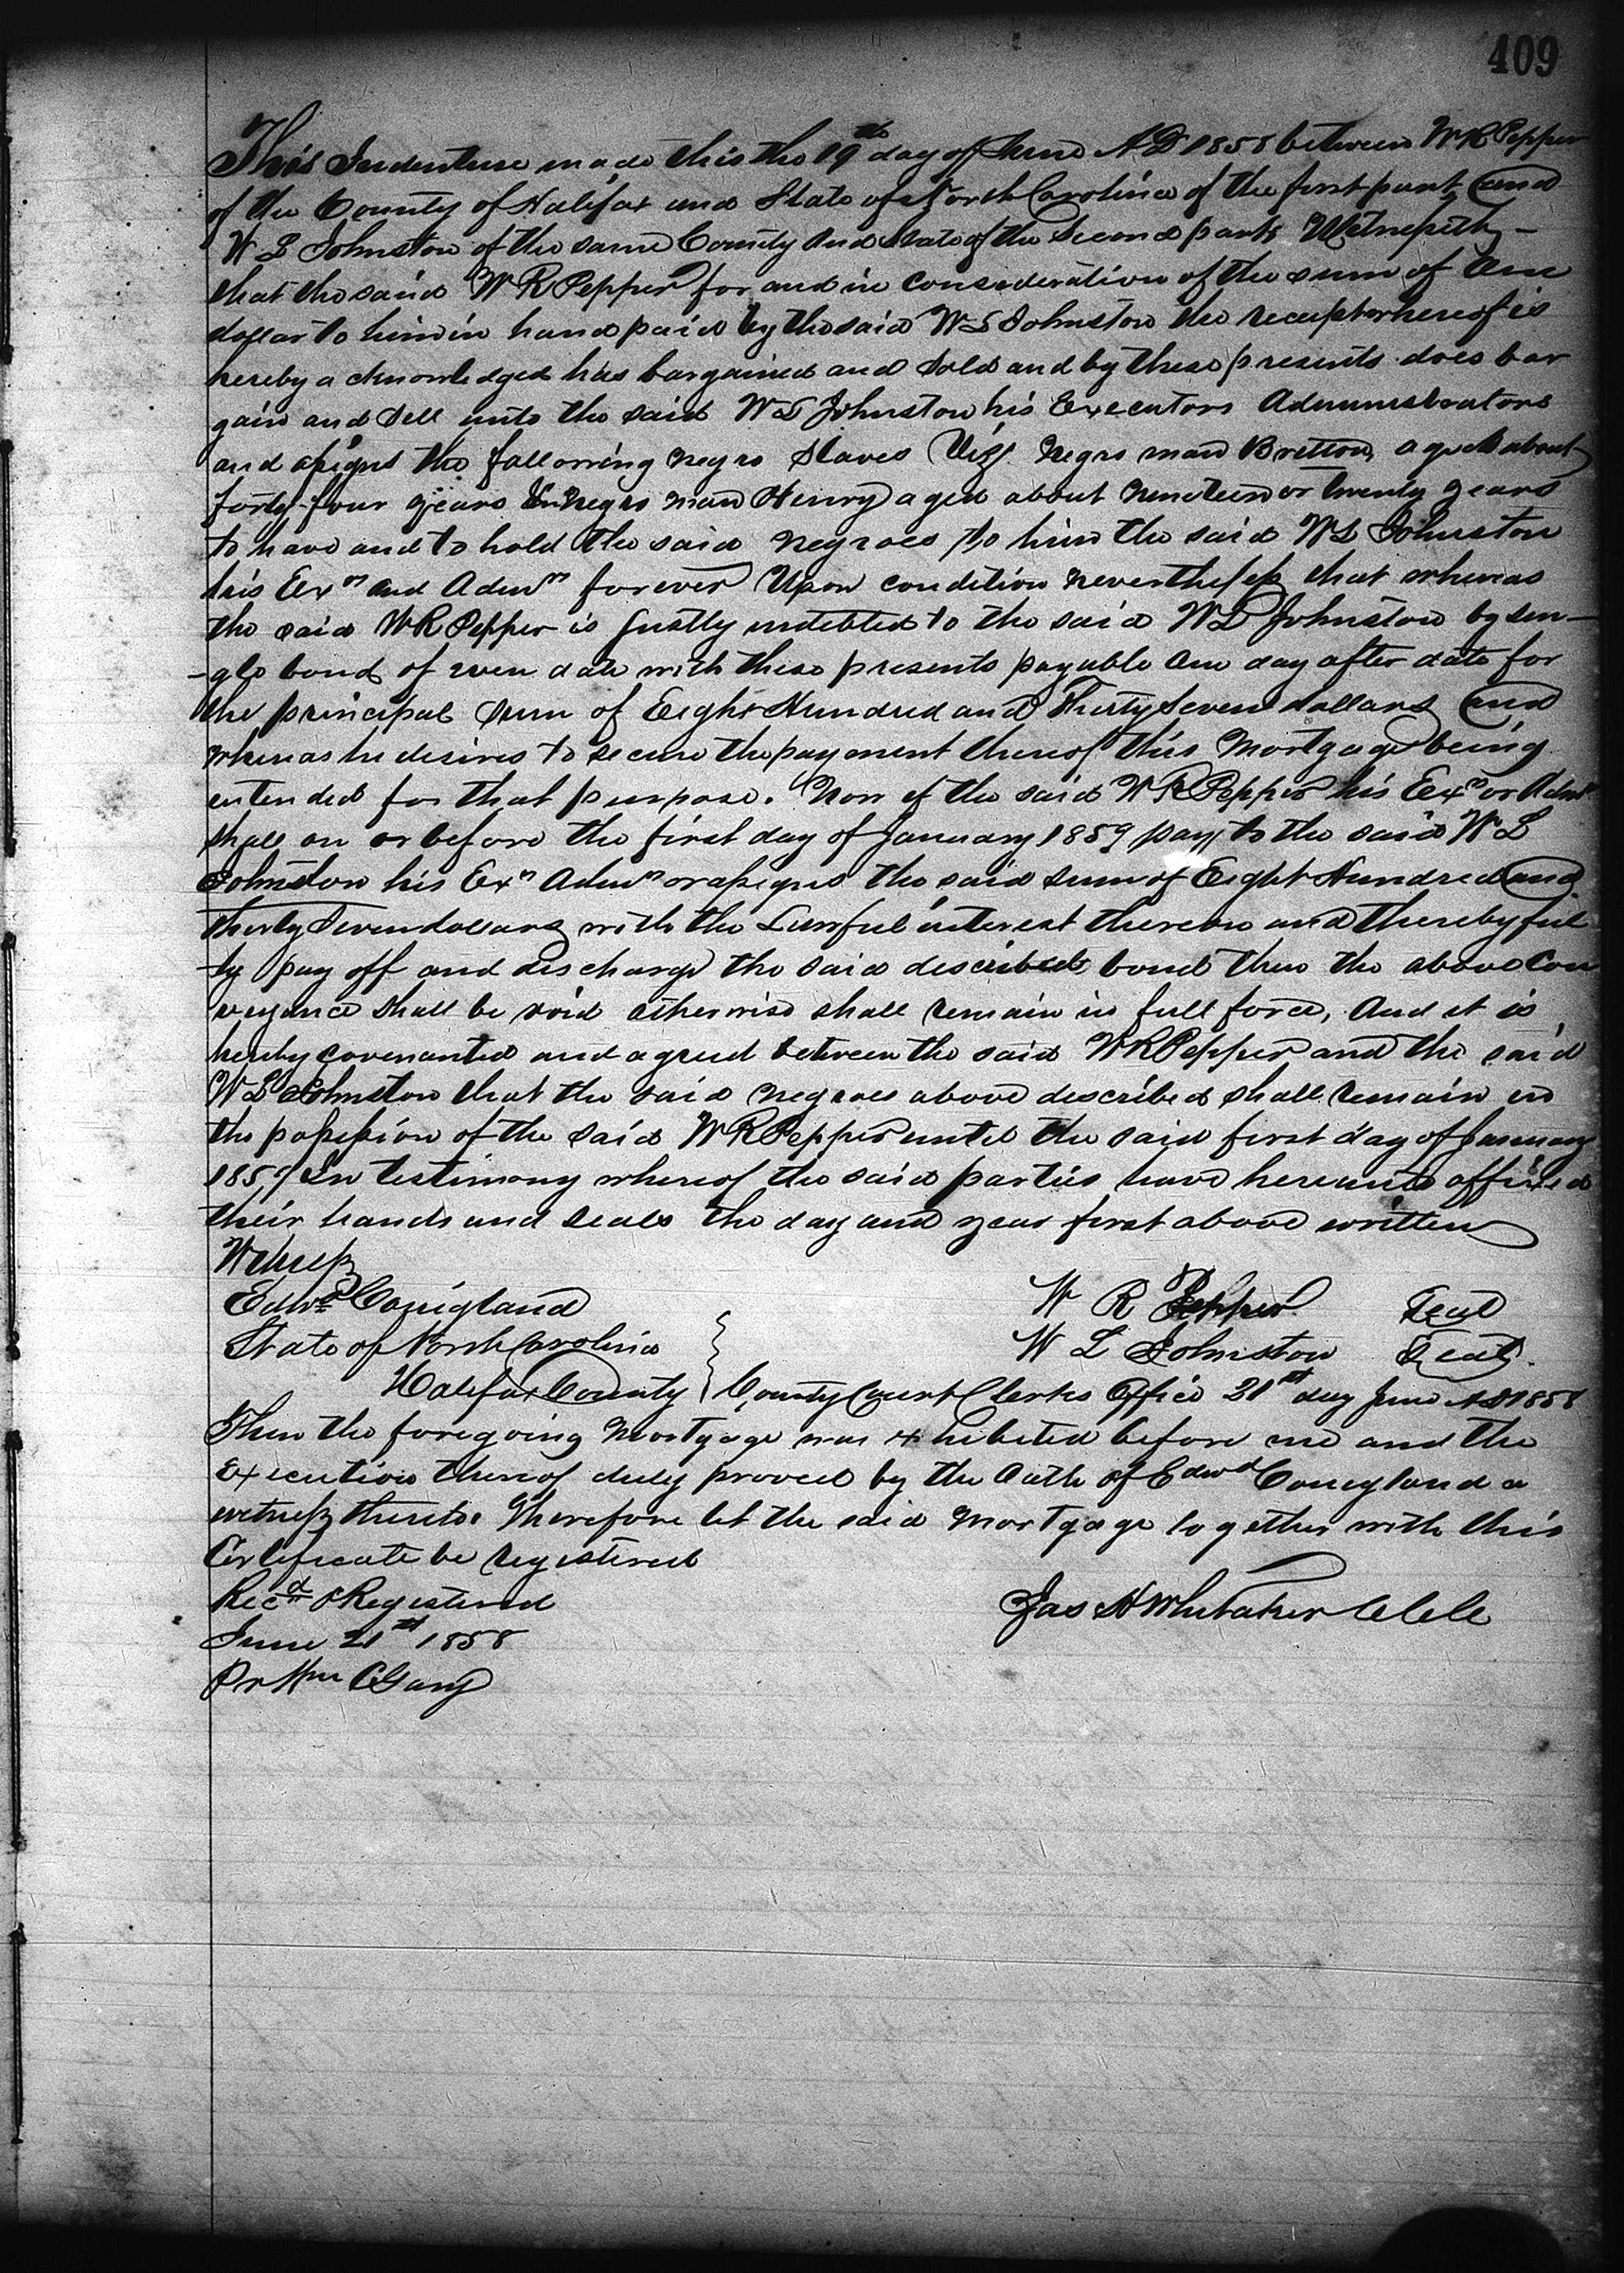 409
This Indenture made this the 19th day of June A D 1858 between W R Pepper
of the County of Halifax and State of North Carolina of the first part and
W L Johnston of the same County and State of the Second part, Witnesseth –
that the said W R Pepper for and in consideration of the sum of One
dollar to him in hand paid by the said W L Johnston the receipt whereof is
hereby acknowledged has bargained and Sold and by these presents does bar
gain and Sell unto the said W L Johnston his Executors Administrators
and assigns the following negro Slaves Viz. Negro man Britton, aged about
forty-four years negro man Henry aged about nineteen or Twenty years
to have and to hold the said negroes to him the said W L Johnston
his Exrs and Admrs forever Upon condition nevertheless that whereas
the said W R Pepper is justly indebted to the said W L Johnston by sin–
–gle bond of even date with these presents payable One day after date for
the principal Sum of Eight Hundred and Thirty Seven dollars and
whereas he desires to secure the payment thereof this Mortgage being
intended for that purpose. Now if the said W R Pepper his Exrs or Admr
shall on or before the first day of January 1859 pay to the said W L
Johnston his Exrs Admrs or assigns the said sum of Eight Hundred and
thirty Seven dollars with the Lawful interest thereon and thereby ful
ly pay off and discharge the said described bond then the above Con
veyance shall be void otherwise shall remain in full force, And it is
hereby covenanted and agreed between the said W R Pepper and the said
W L Johnston that the said negroes above described shall remain in
the possession of the said W R Pepper until the said first day of January
1859 In testimony whereof the said parties have hereunto affixed
their hands and seals the day and year first above written
Witness
Edwd Conigland W R Pepper Seal
State of North Carolina W L Johnston Seal.
Halifax County County Court Clerks Office 21st day June AD 1858
Then the foregoing Mortgage was exhibited before me and the
Execution thereof duly proved by the Oath of Edwd Conigland a
witness thereto. Therefore let the said Mortgage together with this
Certificate be registered
Recd & Registered Jas H Whitaker Clk
June 21st 1858
Pr